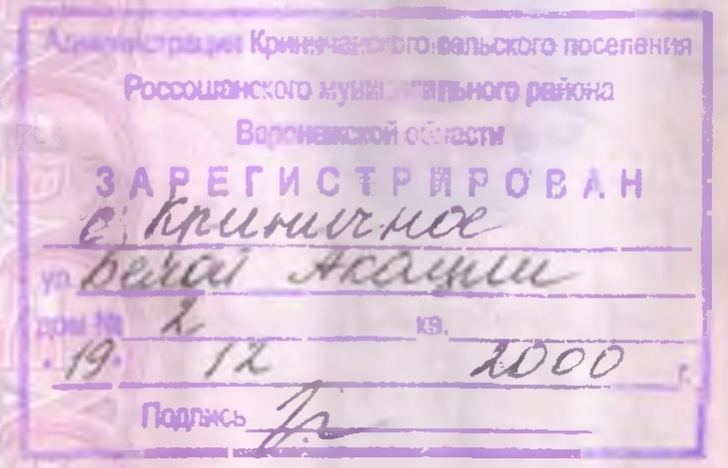 Администрация Криничанского сельского поселения
Россошанского муниципального района
Воронежской области
ЗАРЕГИСТРИРОВАН
с. Криничное
ул. Белой Акации
дом № 2 кв.
"19" 12 2000 г.
Подпись